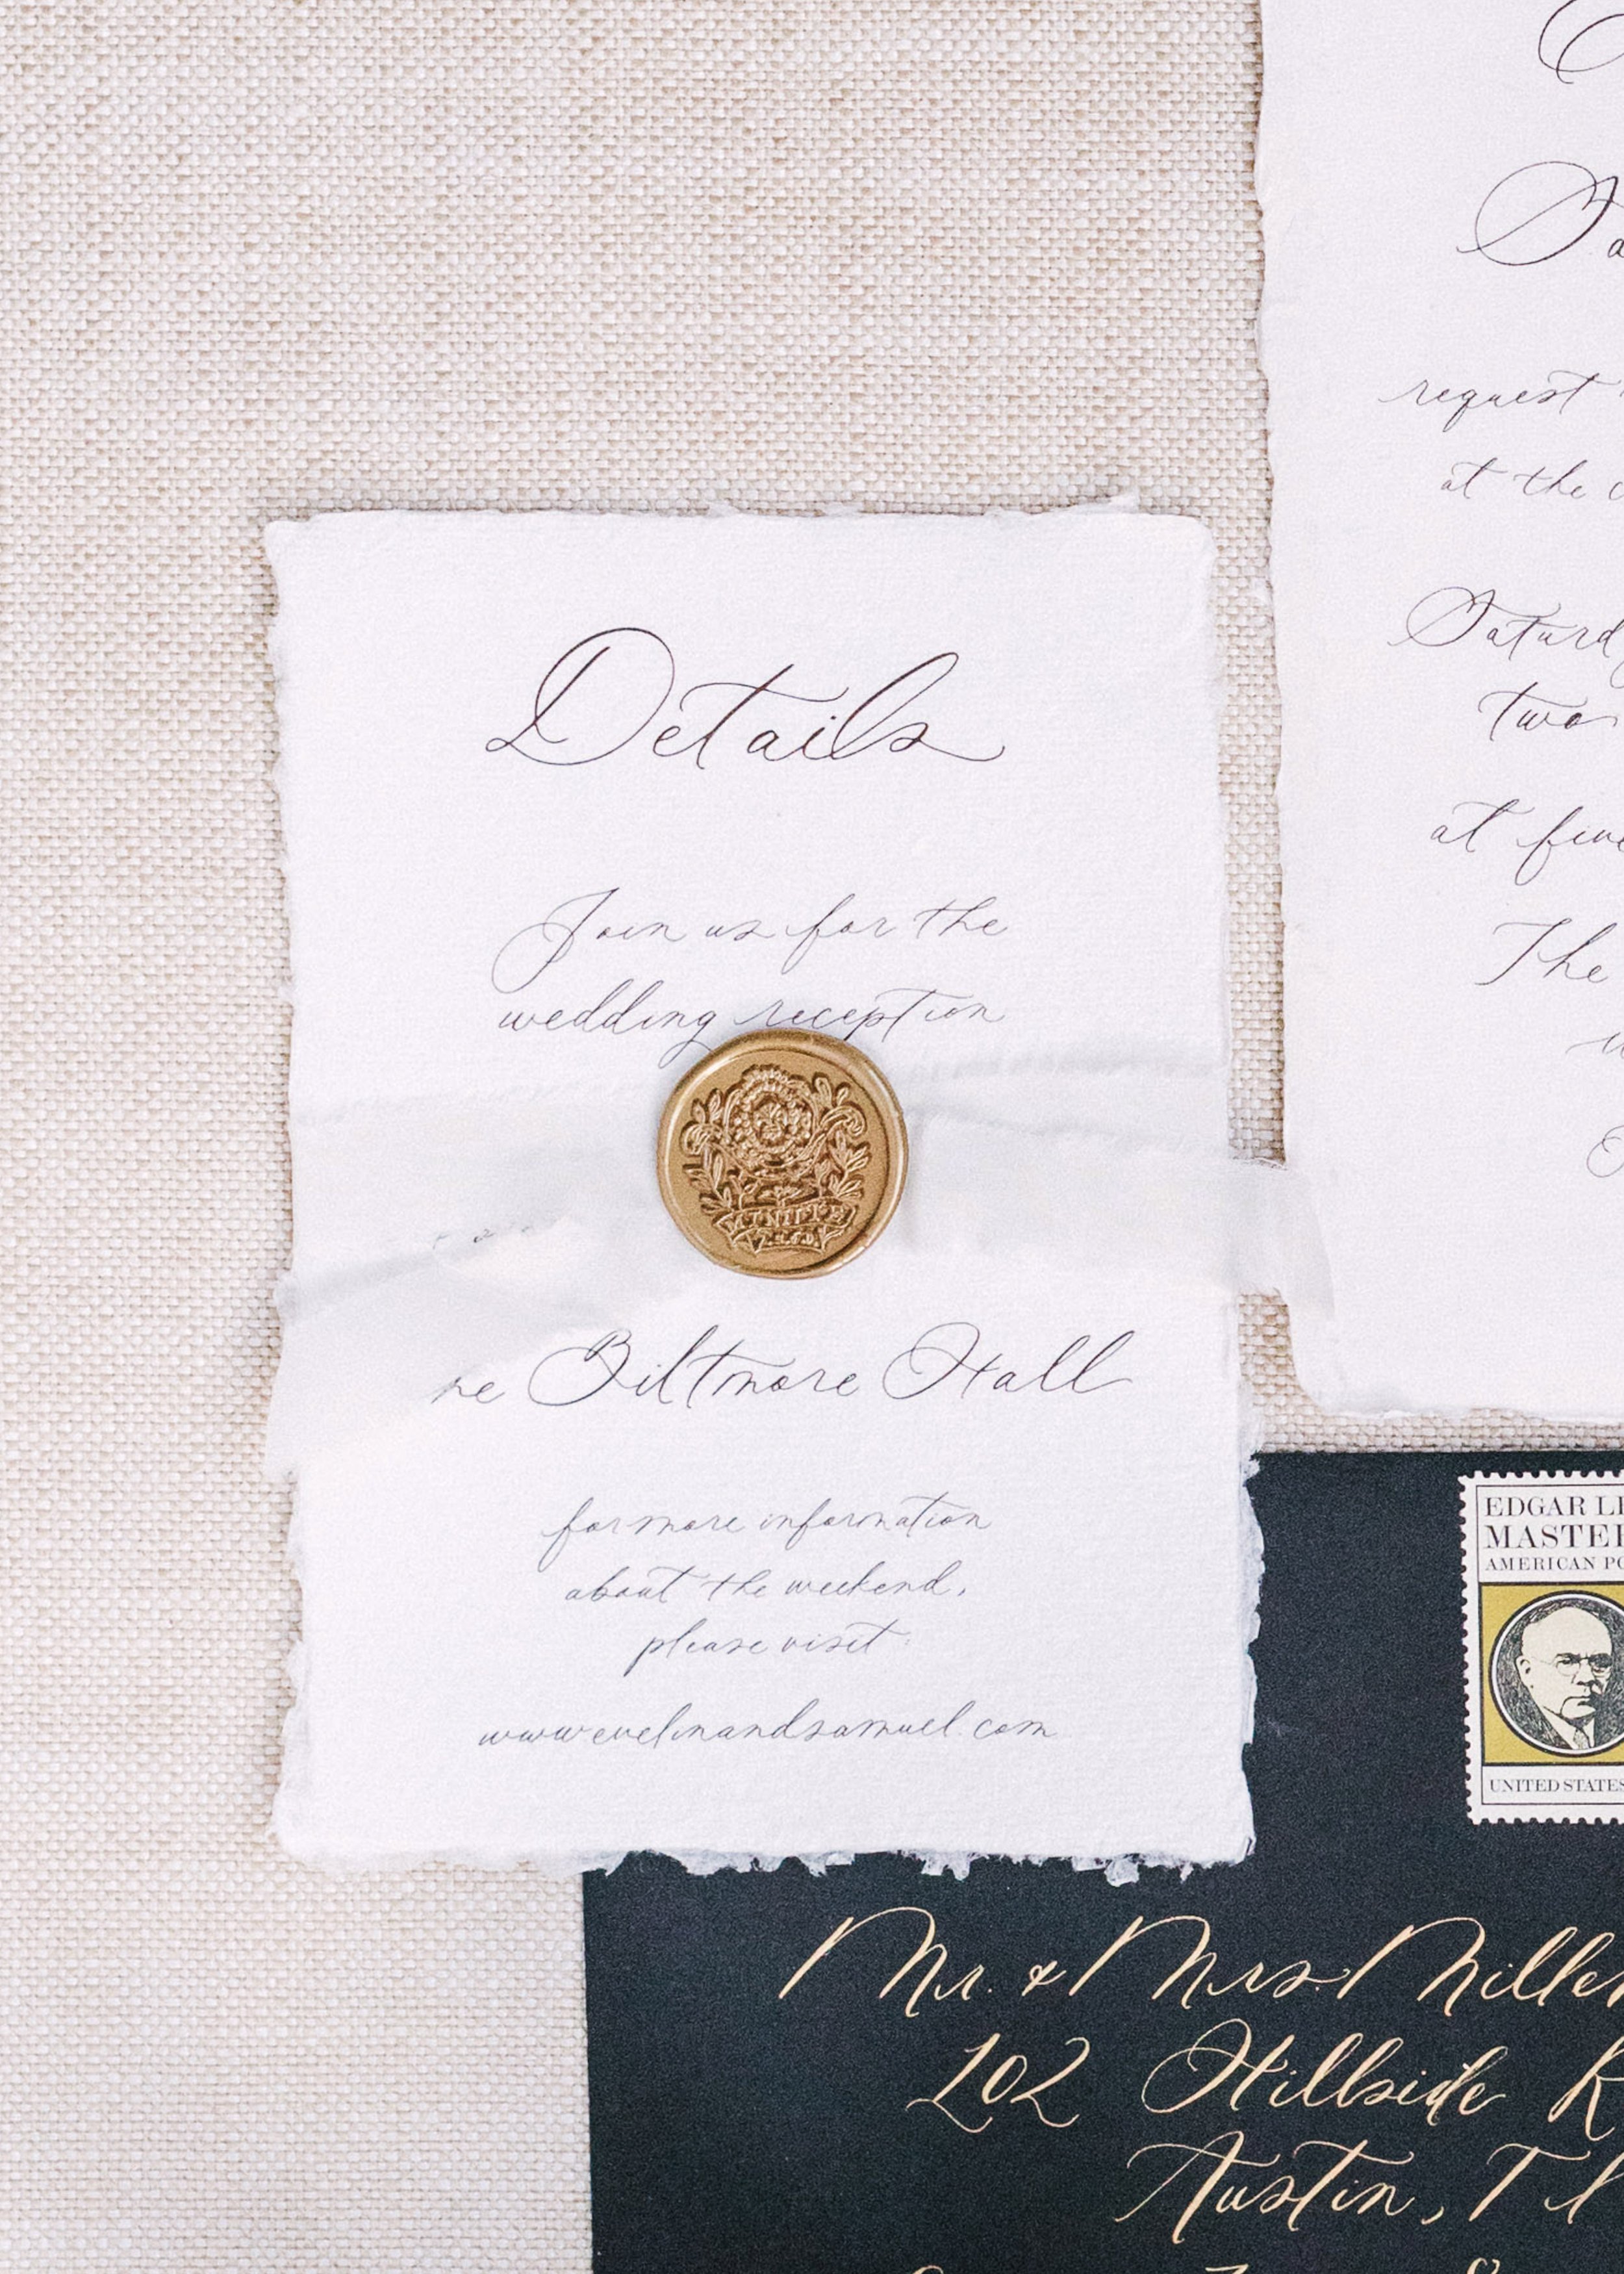 Details
Join us for the
wedding reception
Biltmore Hall
for more information
about the weekend,
please visit
www.evelinandsamuel.com
request
at the
Saturd
two
at five
The
EDGAR LE
MASTER
AMERICAN PO
UNITED STATES
Mr. & Mrs. Miller
102 Hillside R
Austin, T